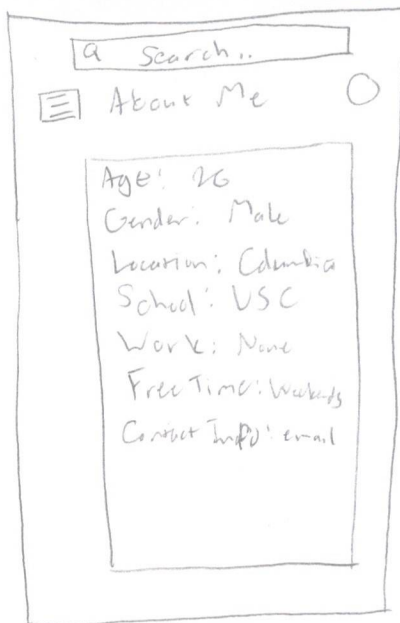 Search..
About Me
Age: 26
Gender: Male
Location: Columbia
School: USC
Work: None
Free Time: Weekends
Contact Info: email